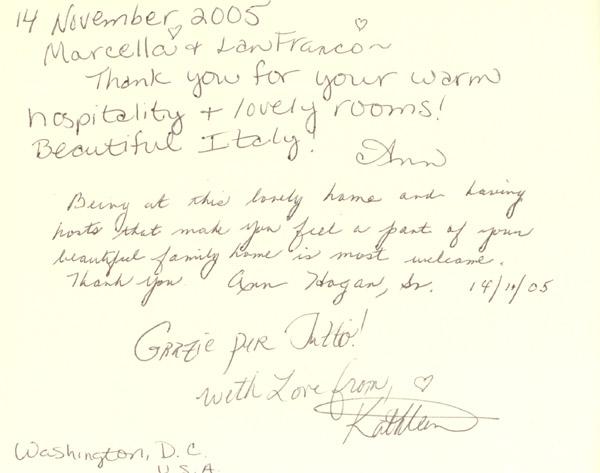 14 November, 2005
Marcella & LanFranco ~
Thank you for your warm
hospitality + lovely rooms!
Beautiful Italy!
Ann
Being at this lovely home and having
hosts that make you feel a part of your
beautiful family home is most welcome.
Thank you Ann Hogan, Sr. 14/10/05
Grazie per Tutto!
with Love from,
Kathleen
Washington, D.C.
U.S.A.